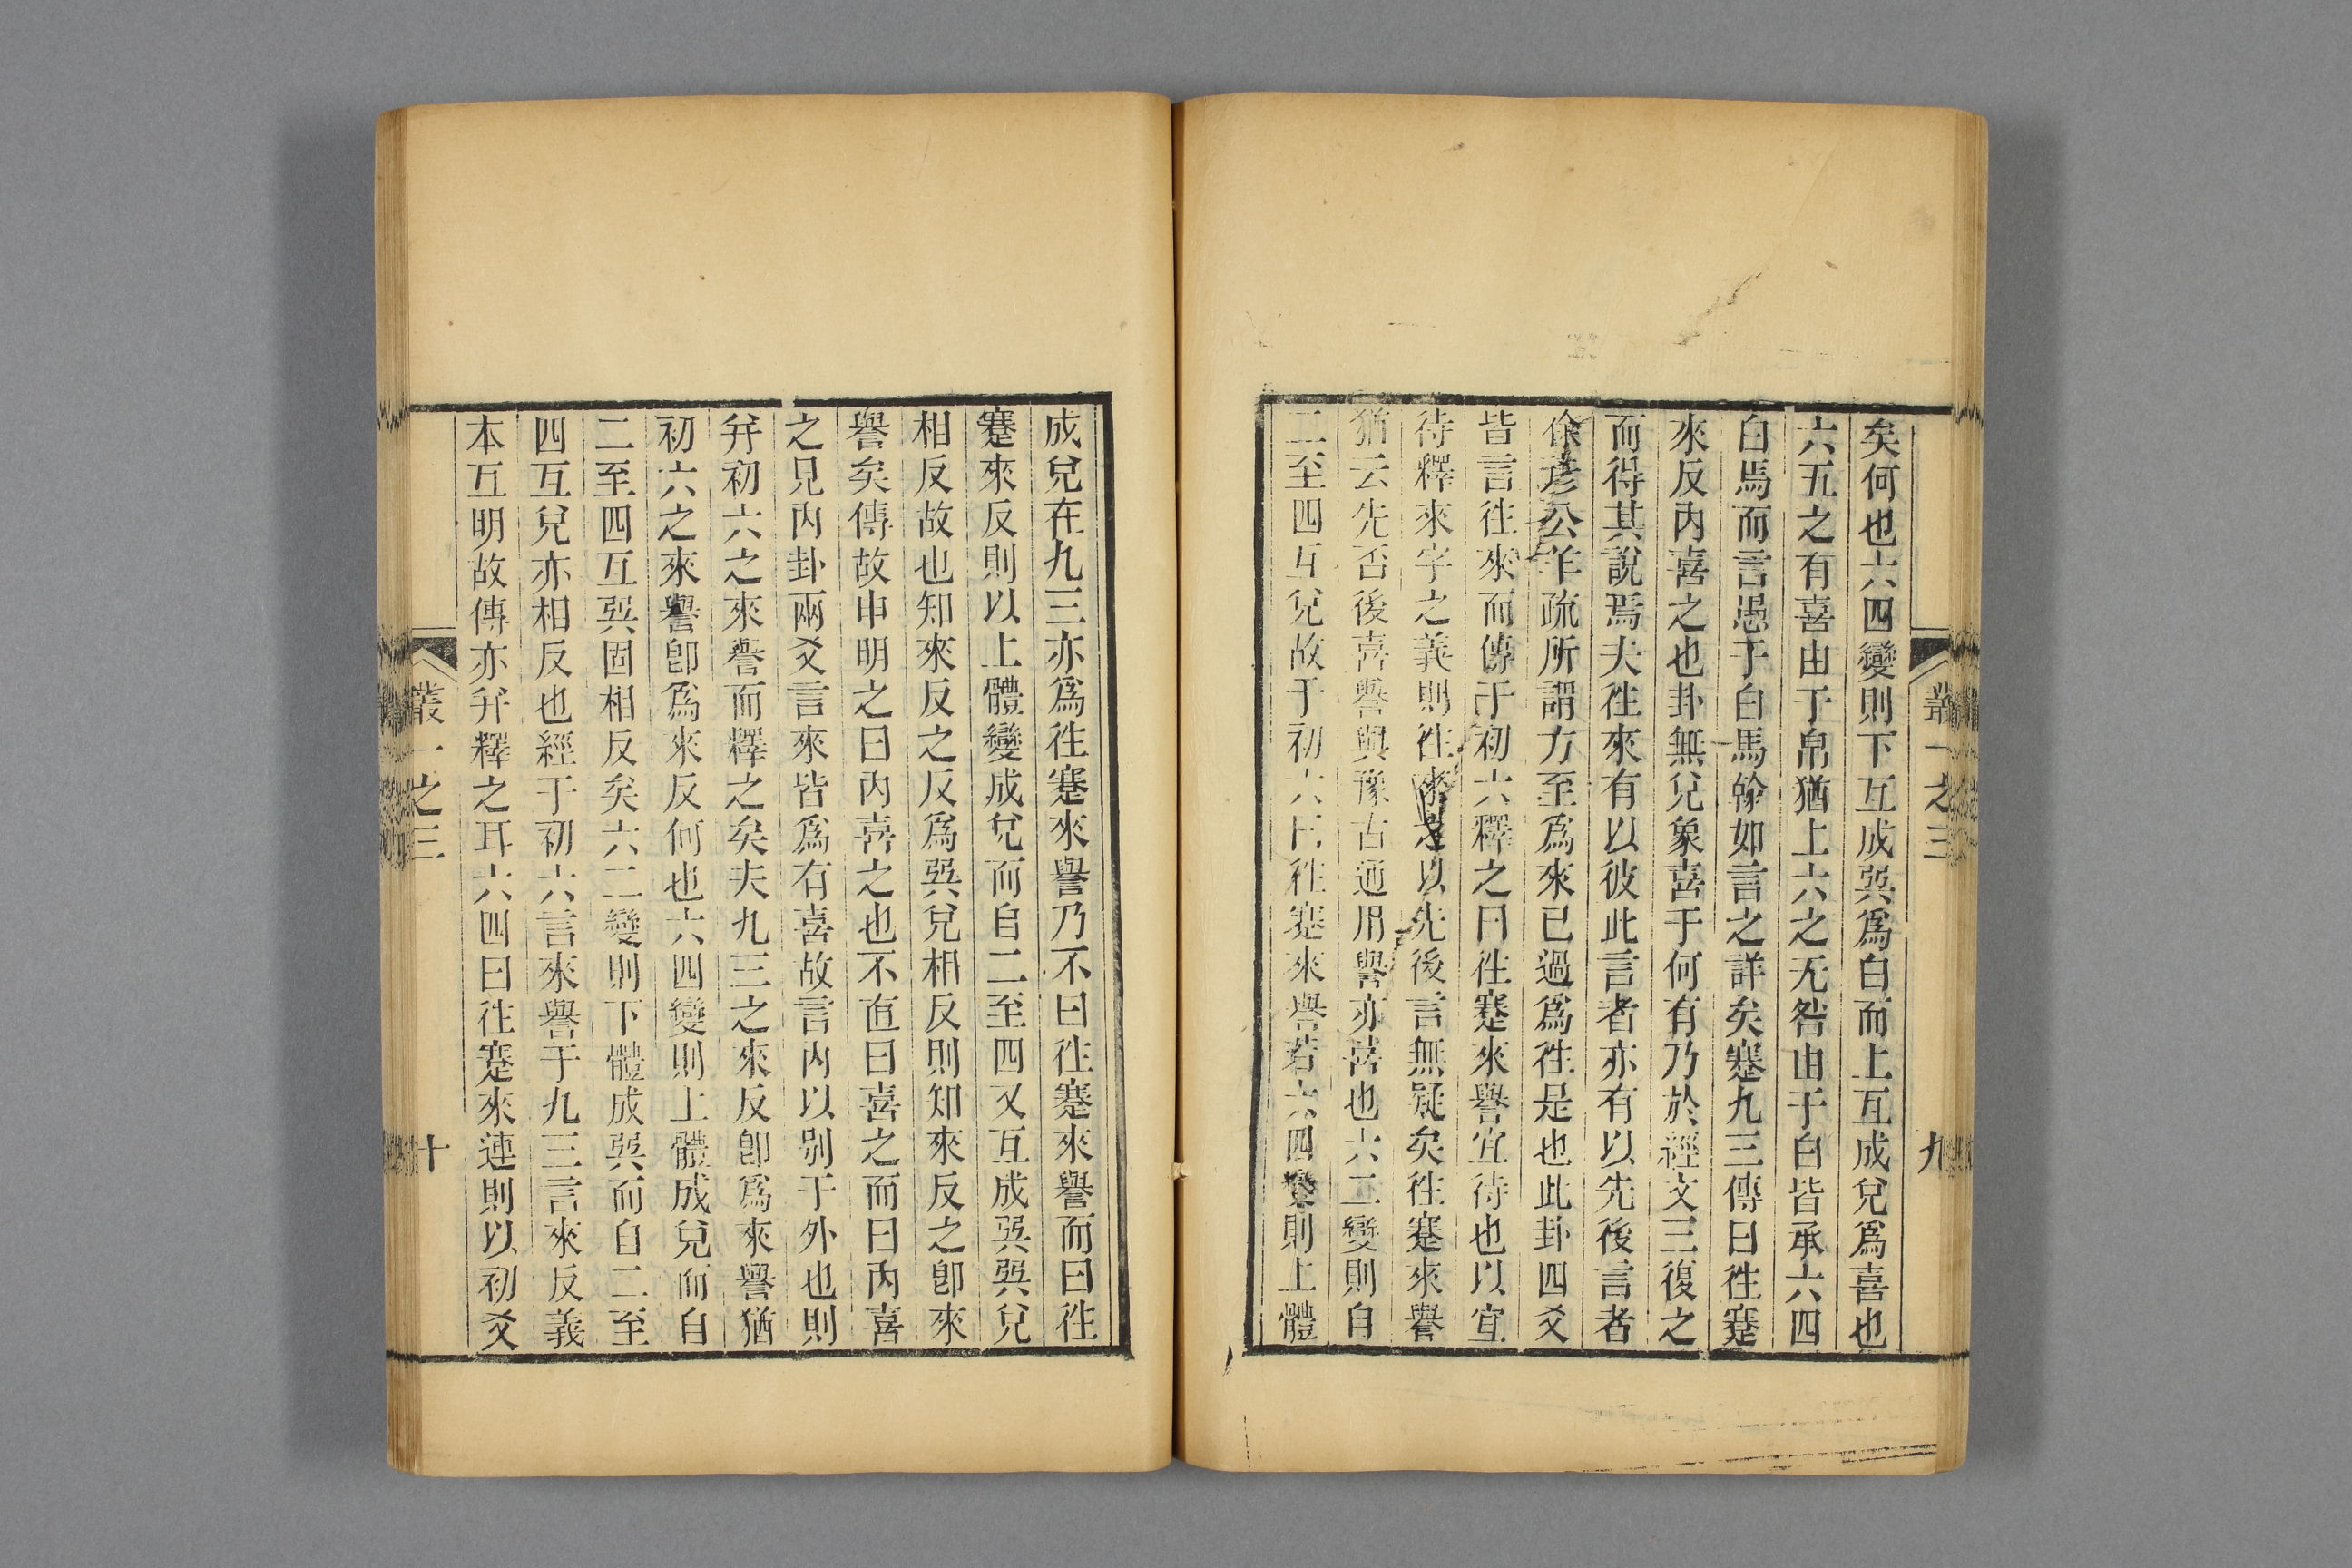 叢一之三
九
矣何也六四變則下互成巽爲白而上互成兌爲喜也
六五之有喜由于帛猶上六之无咎由于白皆承六四
白馬而言愚于白馬翰如言之詳矣蹇九三傳曰徃蹇
來反內喜之也卦無兌象喜于何有乃於經文三復之
而得其說焉夫徃來有以彼此言者亦有以先後言者
徐彦公羊疏所謂方至爲來已過爲徃是也此卦四爻
皆言徃來而傳于初六釋之曰徃蹇來譽宜待也以宜
待釋來字之義則徃來之以先後言無疑矣徃蹇來譽
猶云先否後喜譽與豫古通用譽亦喜也六二變則自
二至四互兌故于初六曰徃蹇來譽若六四變則上體
成兌在九三亦爲徃蹇來譽乃不曰徃蹇來譽而曰徃
蹇來反則以上體變成兌而自二至四又互成巽巽兌
相反故也知來反之反爲巽兌相反則知來反之卽來
譽矣傳故申明之曰內喜之也不直曰喜之而曰內喜
之見內卦兩爻言來皆爲有喜故言內以别于外也則
幷初六之來譽而釋之矣夫九三之來反卽爲來譽猶
初六之來譽卽爲來反何也六四變則上體成兌而自
二至四互巽固相反矣六二變則下體成巽而自二至
四互兌亦相反也經于初六言來譽于九三言來反義
本互明故傳亦幷釋之耳六四曰徃蹇來連則以初爻
叢一之三
十